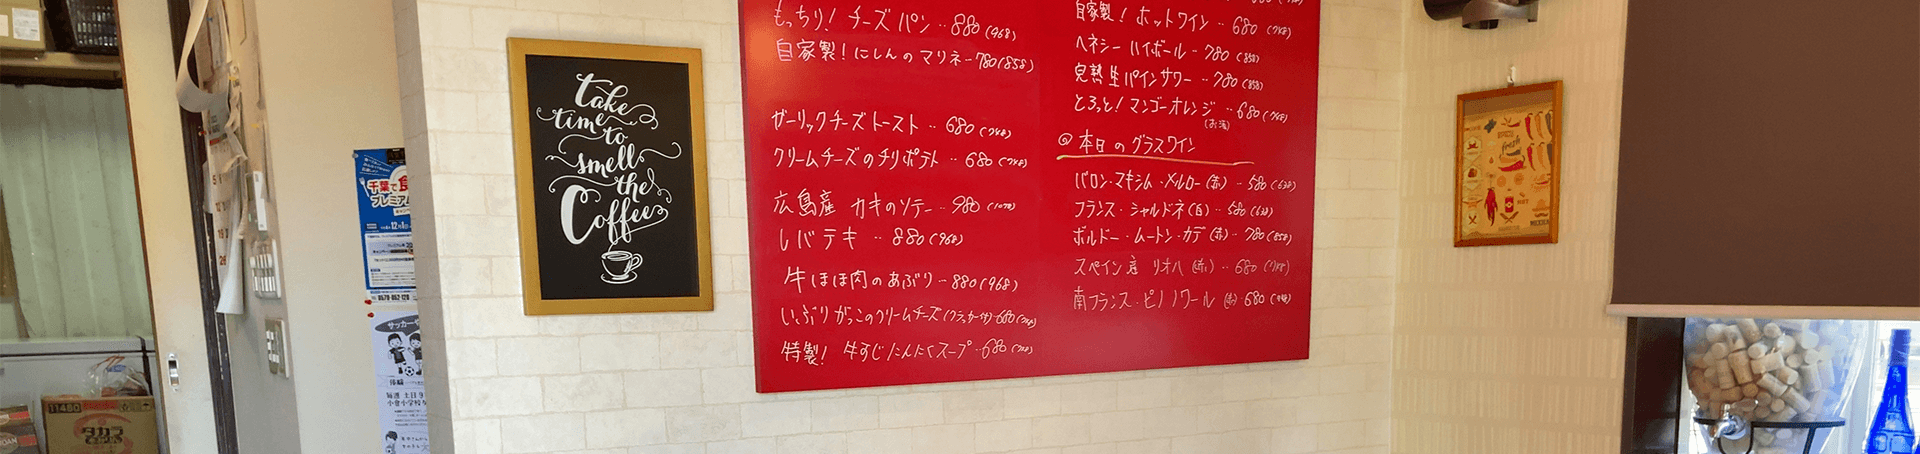 もっちり！チーズパン‥880(968)
自家製！にしんのマリネ‥780(858)
ガーリックチーズトースト‥680(748)
クリームチーズのチリポテト‥680(748)
広島産 カキのソテー‥980(1078)
レバテキ‥880(968)
牛ほほ肉のあぶり‥880(968)
いぶりがっこのクリームチーズ(クラッカー付)‥680(748)
特製！牛すじにんにくスープ‥680(748)
自家製！ホットワイン‥680(748)
ヘネシーハイボール‥780(858)
完熟生パインサワー‥780(858)
とろっと！マンゴーオレンジ‥680(748)
(お酒)
◎本日のグラスワイン
バロン・マキシム・メルロー(赤)‥580(638)
フランス・シャルドネ(白)‥580(638)
ボルドー・ムートン・カデ(赤)‥780(858)
スペイン産 リオハ(赤)‥680(748)
南フランス・ピノノワール(赤)‥680(748)
take
time to
smell
the
Coffee
千葉で食
プレミアム
0570-052-120
サッカーや
体験
毎週 土日
小倉小学校
11480
タカラ
fresh
HOT